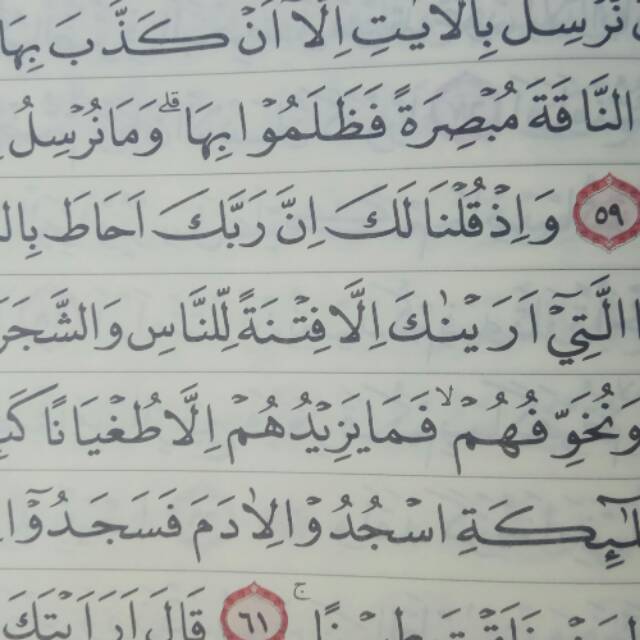 نُرْسِلَ بِالْاٰيٰتِ اِلَّآ اَنْ كَذَّبَ بِهَا
النَّاقَةَ مُبْصِرَةً فَظَلَمُوْا بِهَا ۗ وَمَا نُرْسِلُ
٥٩ وَاِذْ قُلْنَا لَكَ اِنَّ رَبَّكَ اَحَاطَ
الَّتِيْٓ اَرَيْنٰكَ اِلَّا فِتْنَةً لِّلنَّاسِ وَالشَّجَرَ
وَنُخَوِّفُهُمْ ۙ فَمَا يَزِيْدُهُمْ اِلَّا طُغْيَانًا
اسْجُدُوْا لِاٰدَمَ فَسَجَدُوْٓا
٦١ قَالَ اَرَاَيْتَكَ